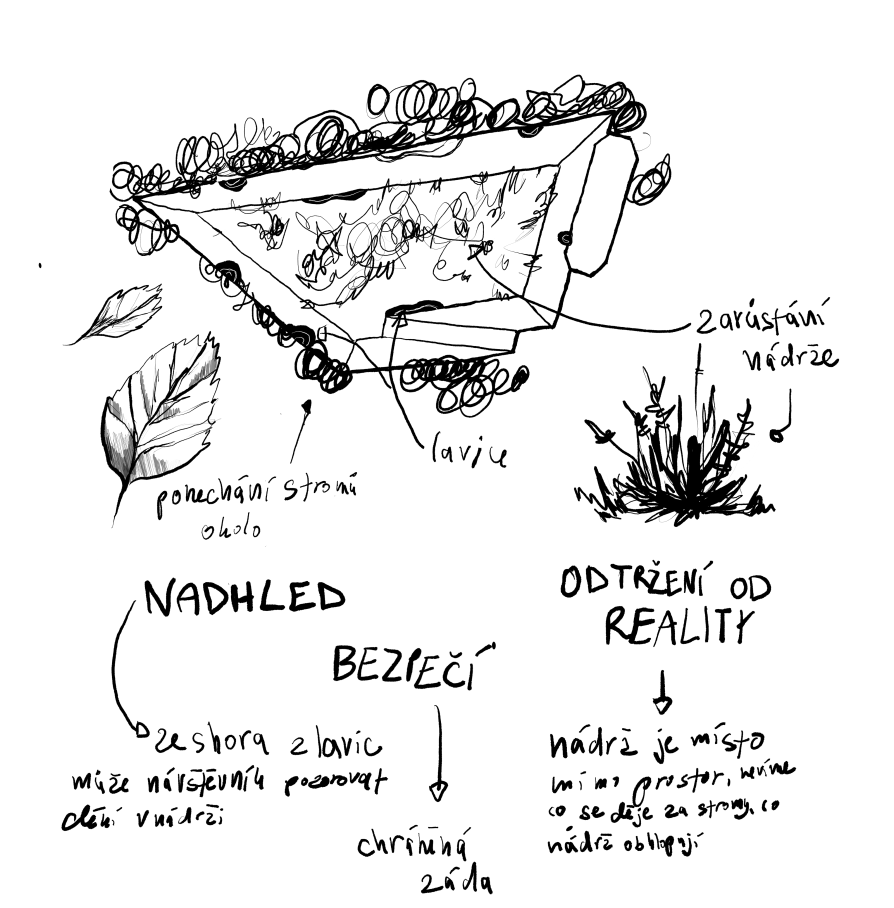 zarůstání
nádrže
lavice
ponechání stromů
okolo
NADHLED
ODTRŽENÍ OD
REALITY
BEZPEČÍ
ze shora z lavic
může návštěvník pozorovat
dění v nádrži
nádrž je místo
mimo prostor, nevíme
co se děje za stromy, co
nádrž obklopují
chráněná
záda